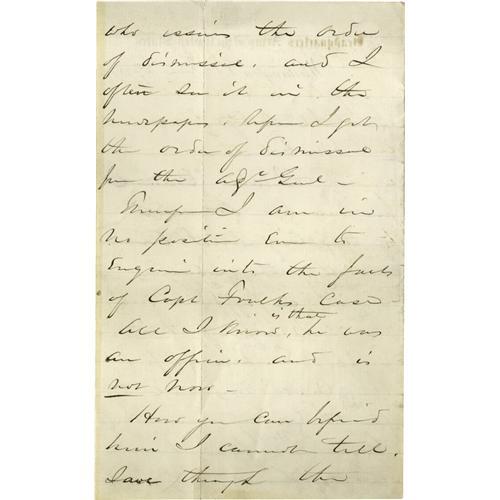 who issues the order
of dismissal. and I
often see it in the
newspapers. When I get
the order of dismissal
from the Adjt Genl —
Therefore I am in
no position even to
Enquire into the facts
of Capt Foulks Case —
All I know, is that he was
an officer. and is
not now —
How you can befriend
him I cannot tell.
Save through the